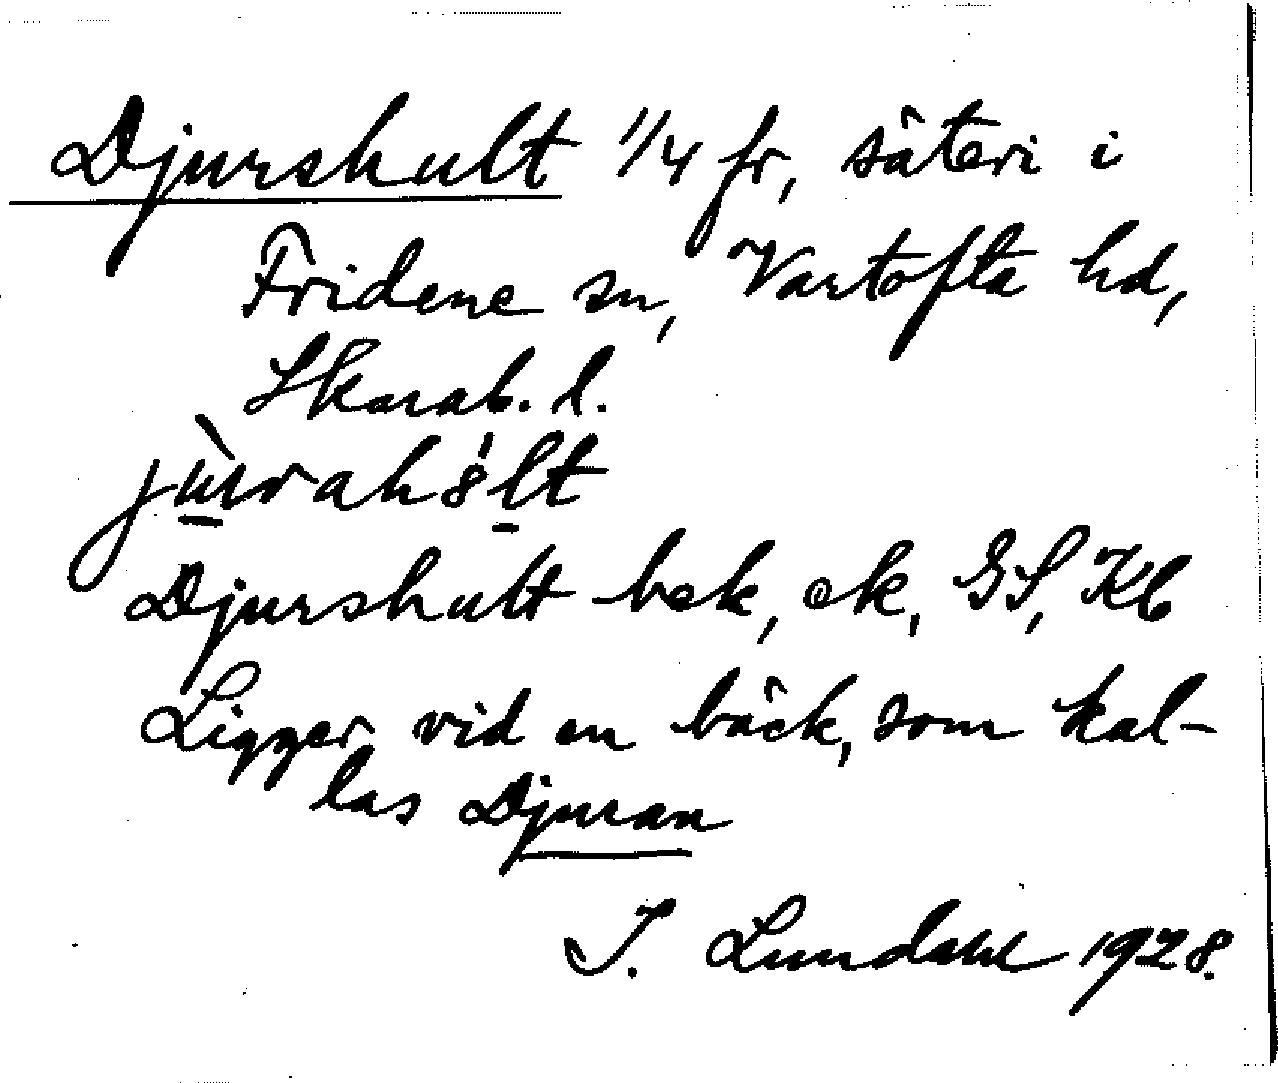 Djurshult 1/4 fr, säteri i
Fridene sn, Vartofta hd,
Skarab. l.
jùrah8́lt
Djurshult bek, ek, GS, Kb
Ligger vid en bäck, som kal-
las Djuran
I. Lundahl 1928.